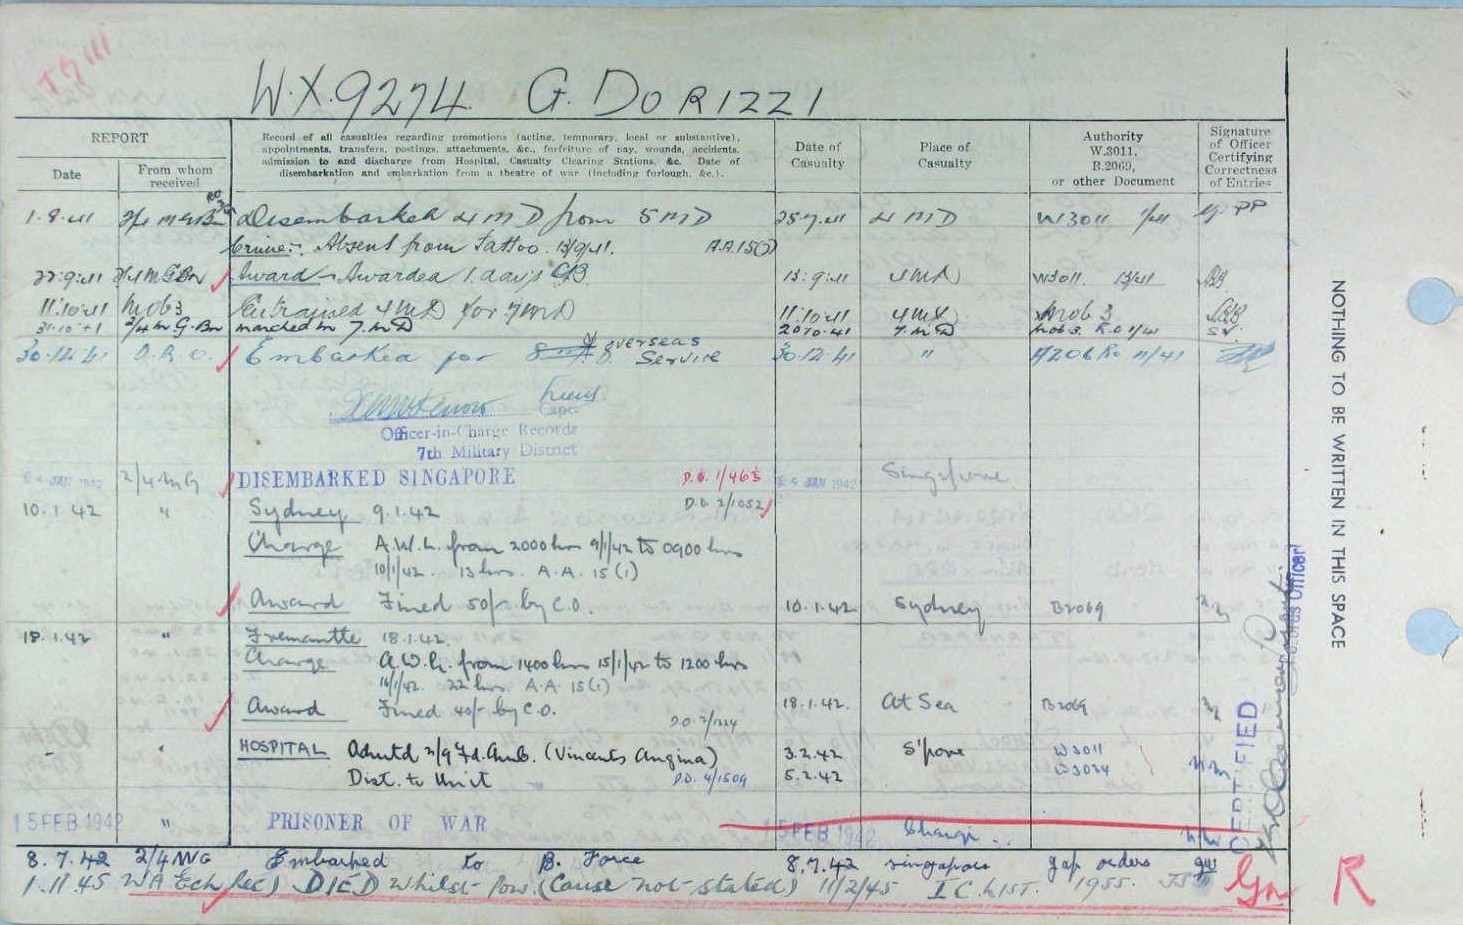 WX9274 G. DORIZZI
REPORT
Date
From whom received
Record of all casualties regarding promotions (acting, temporary, local or substantive), appointments, transfers, postings, attachments, &c., forfeiture of pay, wounds, accidents, admission to and discharge from Hospital, Casualty Clearing Stations, &c. Date of disembarkation and embarkation from a theatre of war (including furlough, &c.).
Date of Casualty
Place of Casualty
Authority W.3011, B.2069, or other Document
Signature of Officer Certifying Correctness of Entries
1.8.41 Disembarked 4 MD from 5 MD 25.7.41 4 MD W3011
Crime:- Absent from Tattoo. 13/9/41. A.A.15(1)
22.9.41 2/4 M G Bn Award - Awarded 1 days CB 13.9.41 4 MD W3011
11.10.41 Mob 3 Entrained 4MD for 7MD 11.10.41 4 MD Mob 3
31.10.41 2/4 M.G.Bn marched in 7.MD 20.10.41 7.MD Mob 3. R.O 1/41
30.12.41 D.R.O. Embarked for overseas Service 30.12.41 " 11/41
Lieut
Capt.
Officer-in-Charge Records
7th Military District
24 JAN 1942 2/4 MG DISEMBARKED SINGAPORE D.O. 1/463 24 JAN 1942 Singapore
10.1.42 " Sydney 9.1.42 D.O. 2/1052
Charge A.W.L. from 2000 hrs 9/1/42 to 0900 hrs
10/1/42. 13 hrs. A.A. 15 (1)
Award Fined 50/- by C.O. 10.1.42 Sydney B2069
18.1.42 " Fremantle 18.1.42
Charge A.W.L. from 1400 hrs 15/1/42 to 1200 hrs
16/1/42. 22 hrs. A.A 15(1)
Award Fined 40/- by C.O. D.O. 2/1224 18.1.42. At Sea B2069
- " HOSPITAL Admtd 2/9 Fd. Amb. (Vincents Angina) 3.2.42 S'pore W3011
Disc. to Unit D.O. 4/1509 5.2.42 W3034
15 FEB 1942 " PRISONER OF WAR 15 FEB 1942 Changi
8.7.42 2/4 MG Embarked to B. Force 8.7.42 Singapore gap orders
1.11.45 WA Ech Rec) DIED whilst POW. (Cause not stated) 11/2/45 I C LIST. 1955.
R
NOTHING TO BE WRITTEN IN THIS SPACE
CERTIFIED
Records Officer